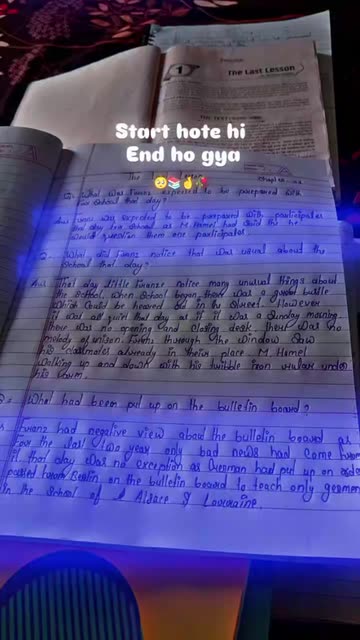 The Last Lesson
Start hote hi
End ho gya
🥺📚✌️🥀
The
Q. What was Franz expected to be prepared with
for School that day?
Ans Franz was expected to be prepared with participles
that day for School as M Hamel had said that he
would question them on participles
Q. What did Franz notice that was usual about the
School that day?
Ans That day little Franz notice many unusual things about
the School. When School began there was a great bustle
which could be heared out in the street. However
it was all quiet that day as if it was a Sunday morning
there was no opening and closing desk. there was no
melody of unison. Through the window Saw
his classmates already in their place. M Hamel
walking up and down with his terrible iron ruler under
his arm.
What had been put up on the bulletin board?
Franz had negative view about the bulletin board as
For the last two year only bad news had come from
it that day was no exception as German had put up on order
from Berlin on the bulletin board to teach only german
in the School of Alsace & Lourraine.